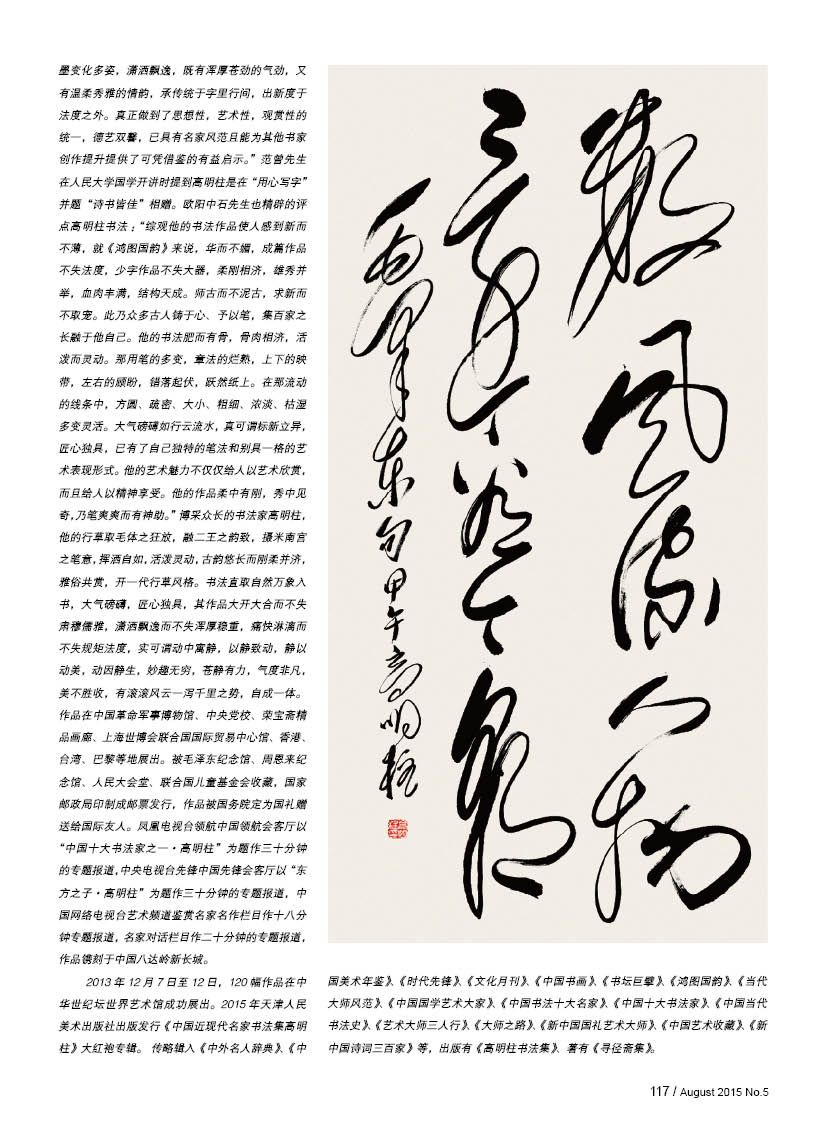 墨变化多姿，潇洒飘逸，既有浑厚苍劲的气劲，又
有温柔秀雅的情韵，承传统于字里行间，出新度于
法度之外。真正做到了思想性，艺术性，观赏性的
统一，德艺双馨，已具有名家风范且能为其他书家
创作提升提供了可凭借鉴的有益启示。”范曾先生
在人民大学国学开讲时提到高明柱是在“用心写字”
并题“诗书皆佳”相赠。欧阳中石先生也精辟的评
点高明柱书法：“综观他的书法作品使人感到新而
不薄，就《鸿图国韵》来说，华而不媚，成篇作品
不失法度，少字作品不失大器，柔刚相济，雄秀并
举，血肉丰满，结构天成。师古而不泥古，求新而
不取宠。此乃众多古人铸于心、予以笔，集百家之
长融于他自己。他的书法肥而有骨，骨肉相济，活
泼而灵动。那用笔的多变，章法的烂熟，上下的映
带，左右的顾盼，错落起伏，跃然纸上。在那流动
的线条中，方圆、疏密、大小、粗细、浓淡、枯湿
多变灵活。大气磅礴如行云流水，真可谓标新立异，
匠心独具，已有了自己独特的笔法和别具一格的艺
术表现形式。他的艺术魅力不仅仅给人以艺术欣赏，
而且给人以精神享受。他的作品柔中有刚，秀中见
奇，乃笔爽爽而有神助。”博采众长的书法家高明柱，
他的行草取毛体之狂放，融二王之韵致，摄米南宫
之笔意，挥洒自如，活泼灵动，古韵悠长而刚柔并济，
雅俗共赏，开一代行草风格。书法直取自然万象入
书，大气磅礴，匠心独具，其作品大开大合而不失
肃穆儒雅，潇洒飘逸而不失浑厚稳重，痛快淋漓而
不失规矩法度，实可谓动中寓静，以静致动，静以
动美，动因静生，妙趣无穷，苍静有力，气度非凡，
美不胜收，有滚滚风云一泻千里之势，自成一体。
作品在中国革命军事博物馆、中央党校、荣宝斋精
品画廊、上海世博会联合国国际贸易中心馆、香港、
台湾、巴黎等地展出。被毛泽东纪念馆、周恩来纪
念馆、人民大会堂、联合国儿童基金会收藏，国家
邮政局印制成邮票发行，作品被国务院定为国礼赠
送给国际友人。凤凰电视台领航中国领航会客厅以
“中国十大书法家之一·高明柱”为题作三十分钟
的专题报道，中央电视台先锋中国先锋会客厅以“东
方之子·高明柱”为题作三十分钟的专题报道，中
国网络电视台艺术频道鉴赏名家名作栏目作十八分
钟专题报道，名家对话栏目作二十分钟的专题报道，
作品镌刻于中国八达岭新长城。
2013 年 12 月 7 日至 12 日，120 幅作品在中
华世纪坛世界艺术馆成功展出。2015 年天津人民
美术出版社出版发行《中国近现代名家书法集高明
柱》大红袍专辑。 传略辑入《中外名人辞典》、《中
数风流人物
毛泽东句 甲午 高明柱
国美术年鉴》、《时代先锋》、《文化月刊》、《中国书画》、《书坛巨擘》、《鸿图国韵》、《当代
大师风范》、《中国国学艺术大家》、《中国书法十大名家》、《中国十大书法家》、《中国当代
书法史》、《艺术大师三人行》、《大师之路》、《新中国国礼艺术大师》、《中国艺术收藏》、《新
中国诗词三百家》等，出版有《高明柱书法集》、著有《寻径斋集》。
117 / August 2015 No.5